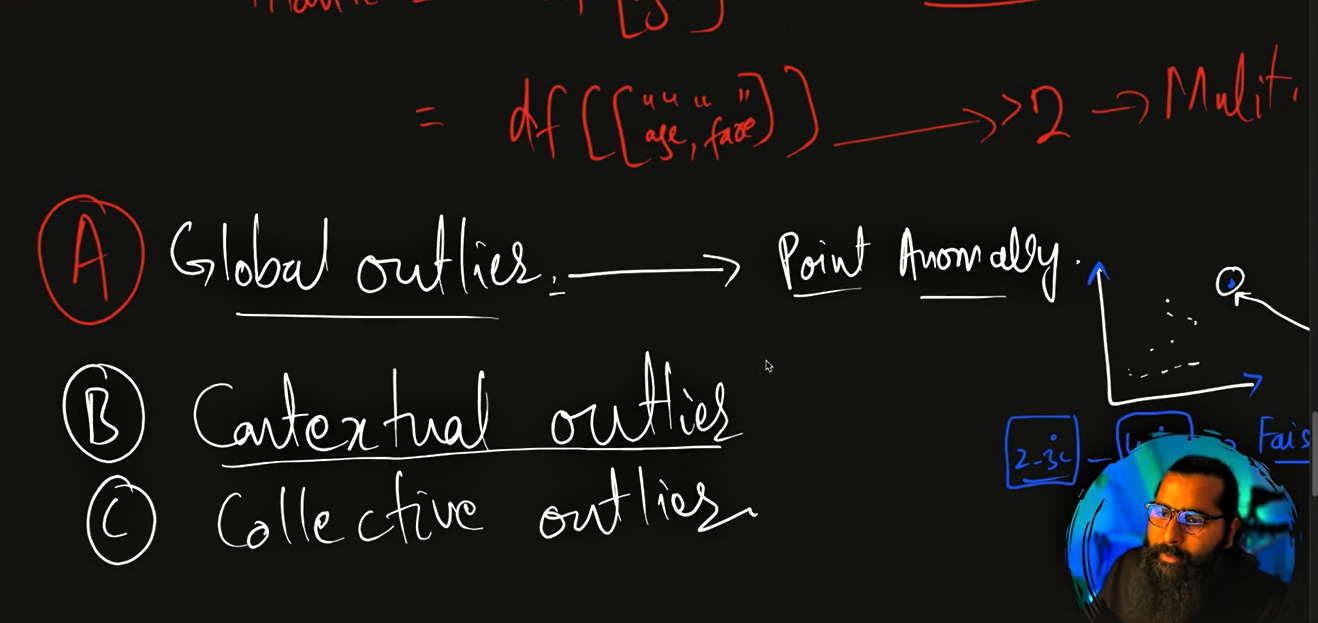 = df[["age, fare"]] →> 2 → Mulit.
A Global outlier. → Point Anomally.
B Contextual outlier
2-3c - Fais
C Collective outlier